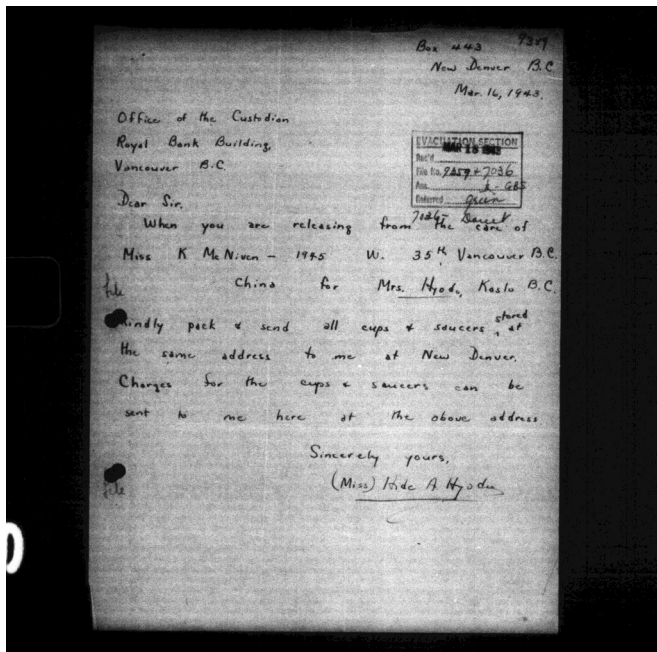 9359
Box 443
New Denver B.C
Mar. 16, 1943.
Office of the Custodian
Royal Bank Building,
Vancouver B.C.
EVACUATION SECTION
MAR 18 1943
Rec'd
File No. 9359 + 7036
Ans.
Referred
Dear Sir,
When you are releasing from the care of
Miss K McNiven - 1945 W. 35th Vancouver B.C.
China for Mrs. Hyodo, Kaslo B.C.
file
Kindly pack & send all cups & saucers stored at
the same address to me at New Denver.
Charges for the cups & saucers can be
sent to me here at the above address
Sincerely yours,
(Miss) Hide A Hyodo
file